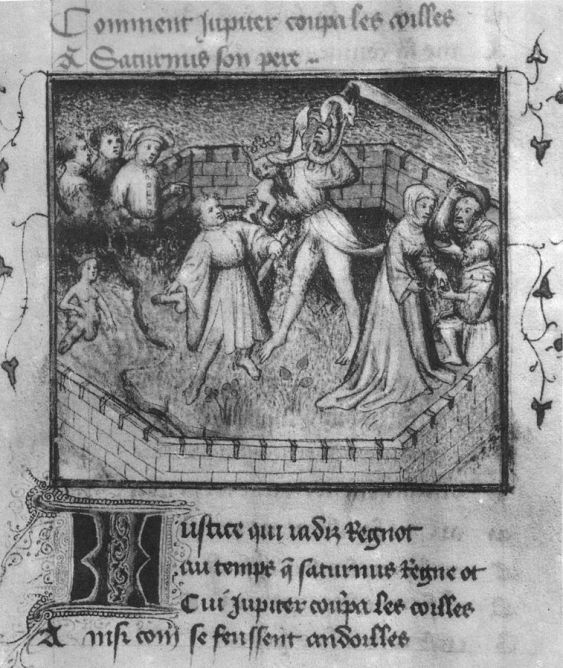 Comment Jupiter coupa les coilles
A Saturnus son pere
Justice qui iadiz Regnot
au temps q̄ saturnus Regne ot
Cui Jupiter coupa les coilles
Ainsi com se feussent andoilles